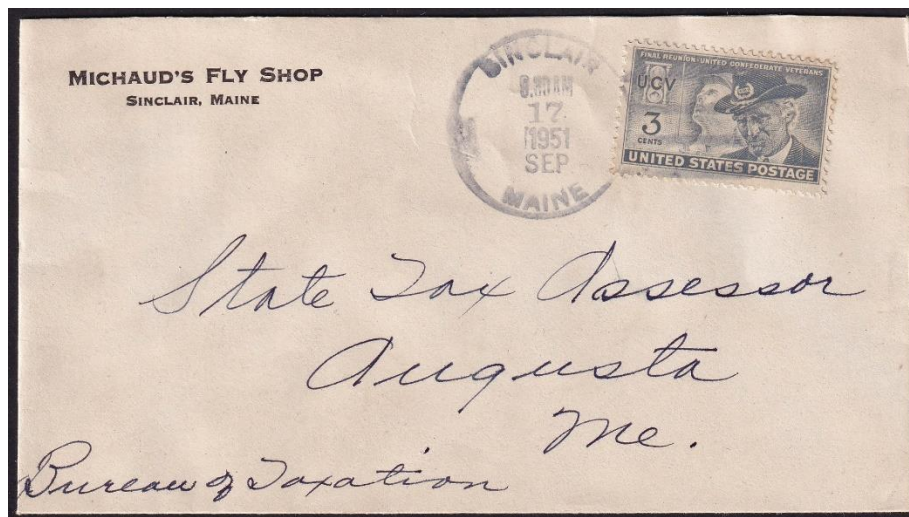 MICHAUD'S FLY SHOP
SINCLAIR, MAINE
SINCLAIR
AM
17
1951
SEP
MAINE
FINAL REUNION · UNITED CONFEDERATE VETERANS
UCV
3
CENTS
UNITED STATES POSTAGE
State Tax Assessor
Augusta
Me.
Bureau of Taxation